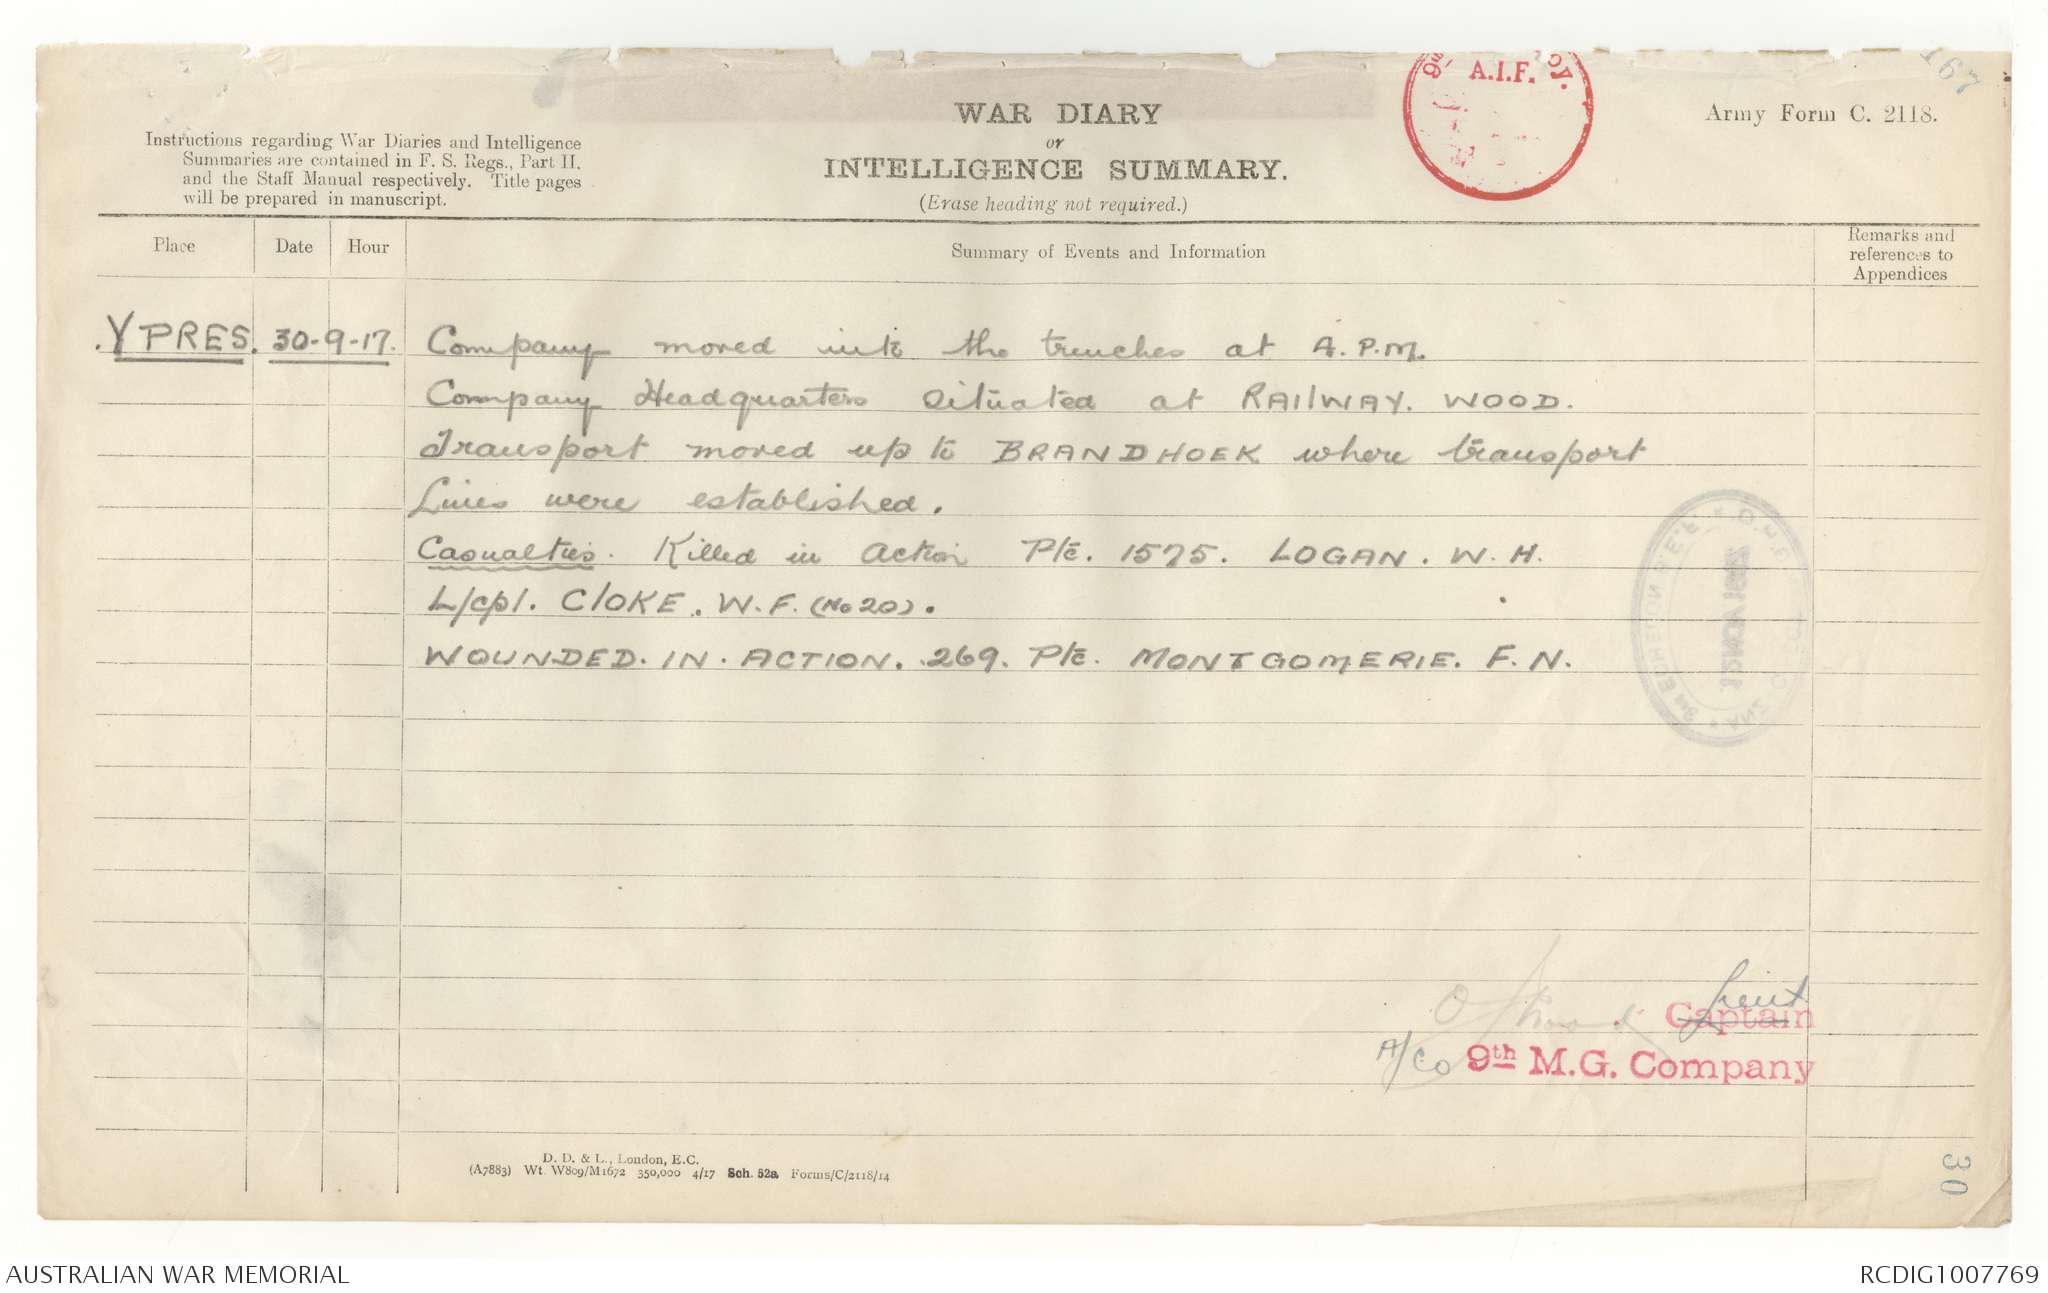 167
A.I.F.
WAR DIARY
or
INTELLIGENCE SUMMARY.
(Erase heading not required.)
Army Form C. 2118.
Instructions regarding War Diaries and Intelligence
Summaries are contained in F. S. Regs., Part II.
and the Staff Manual respectively. Title pages
will be prepared in manuscript.
Place Date Hour Summary of Events and Information Remarks and references to Appendices
YPRES. 30-9-17. Company moved into the trenches at A.P.M.
Company Headquarters situated at RAILWAY. WOOD.
Transport moved up to BRANDHOEK where transport
Lines were established.
Casualties. Killed in Action Pte. 1575. LOGAN. W. H.
L/cpl. CLOKE. W.F. (No 20).
WOUNDED. IN. ACTION. 269. Pte. MONTGOMERIE. F. N.
Lieut
Captain
A/Co 9th M.G. Company
D. D. & L., London, E.C.
(A7883) Wt. W809/M1672 350,000 4/17 Sch. 52a Forms/C/2118/14
30
AUSTRALIAN WAR MEMORIAL
RCDIG1007769